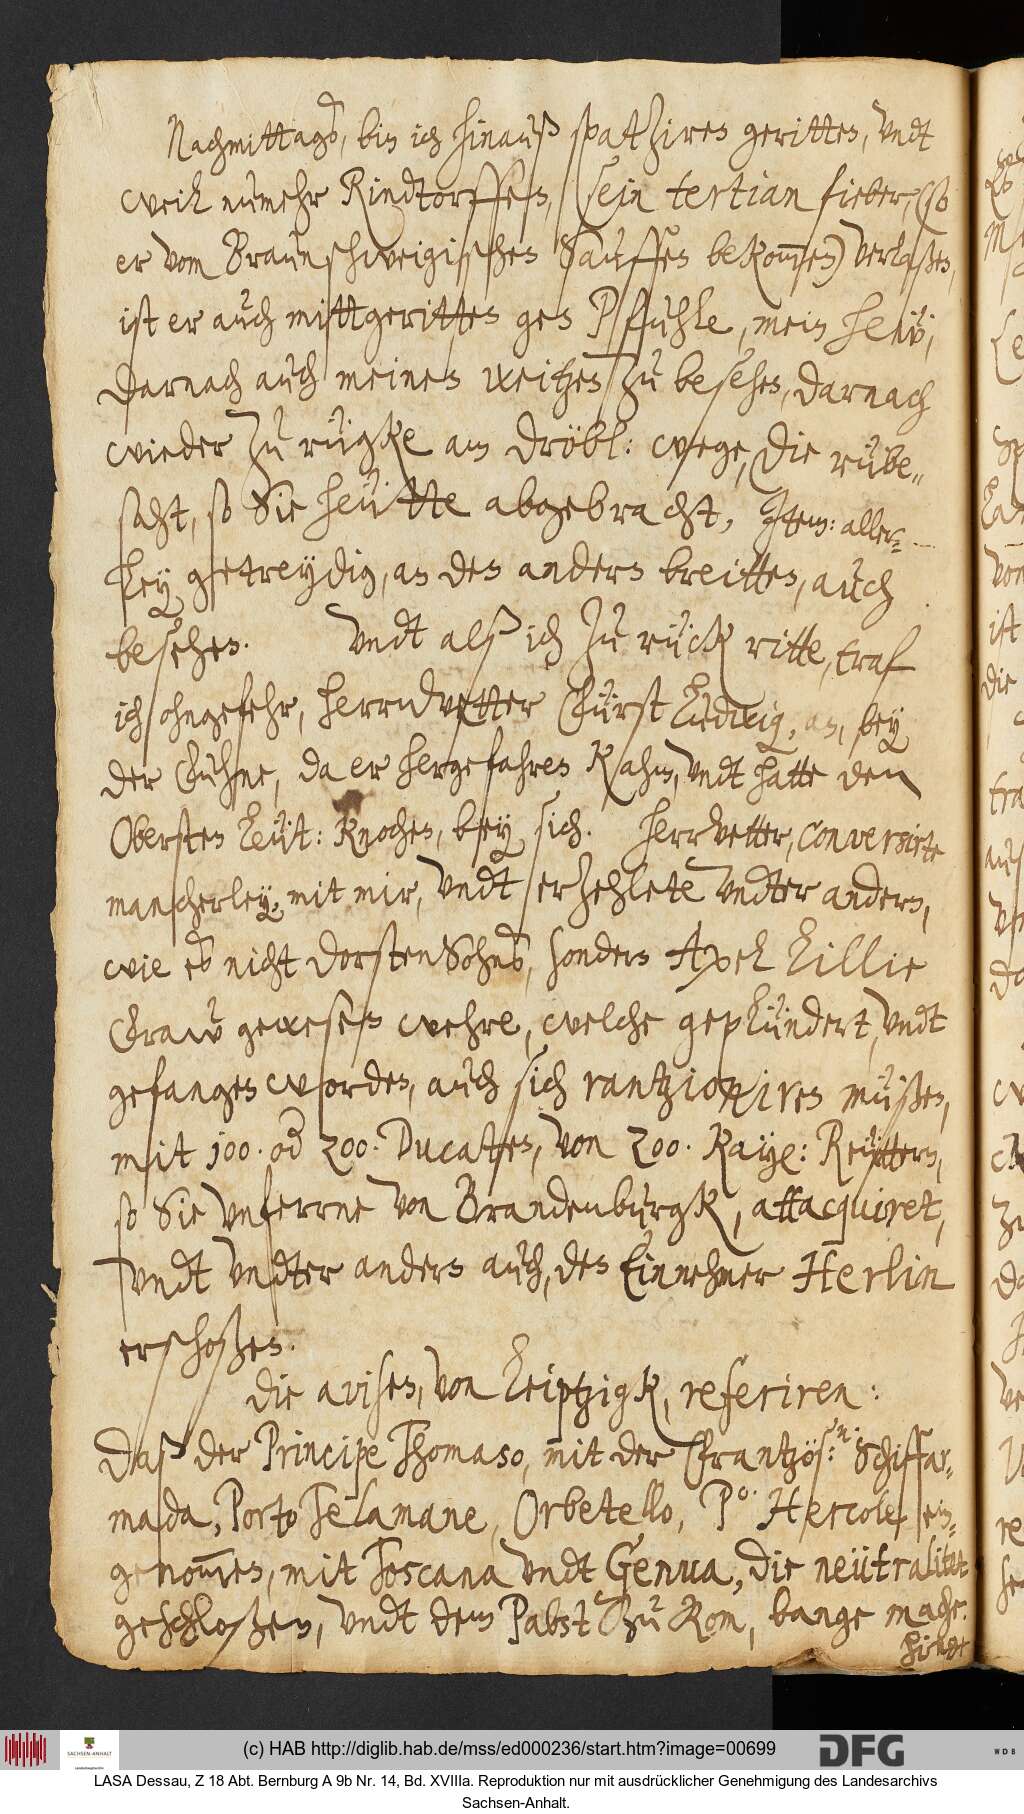 Nachmittags, bin ich hinauß spatziren geritten, vndt
weil nu̅mehr Rindtorffen, sein tertian fieber, (so
er vom Braunschweigischen Sauffen bekom̅en) verlaßen,
ist er auch mittgeritten gen Pfuhle, mein heẅ,
darnach auch meinen weitzen zu besehen, darnach
wieder zu rügke am Dröbl: wege, die rübe„
saht, so Sie heütte abgebracht, Item: aller„
ley getreydig, an den andern breitten, auch
besehen. Vndt alß ich zu rück ritte, traf
ich ohngefehr, herrnvetter Fürst Ludwig, an, bey
der Fuhne, da er hergefahren kahm, vndt hatte den
Obersten Leüt: Knochen, bey sich. Herrvetter, conversirte
mancherley, mit mir, vndt erzehlete vndter andern,
wie es nicht DorstenSohns, sondern Axel Lillie
Fraw gewesen wehre, welche geplündert, vndt
gefangen worden, auch sich rantzioniren müßen,
mit 100. od 200. Ducaten, von 200. Kayß: Reüttern,
so Sie vnferrne von Brandenburgk, attacquiret,
vndt vndter andern auch, den Einnehmer Herlin
erschoßen.
Die avisen, von Leiptzigk, referiren:
Daß der Principe Thomaso, mit der Frantzös:n. Schiffar„
mada, Porto Telamane, Orbetello, Po. Hercole, ein„
genom̅en, mit Toscana vndt Genua, die neütralitet
geschloßen, vndt dem Pabst zu Rom, bange mache.
(c) HAB http://diglib.hab.de/mss/ed000236/start.htm?image=00699
SACHSEN-ANHALT
DFG
WDB
LASA Dessau, Z 18 Abt. Bernburg A 9b Nr. 14, Bd. XVIIIa. Reproduktion nur mit ausdrücklicher Genehmigung des Landesarchivs
Sachsen-Anhalt.